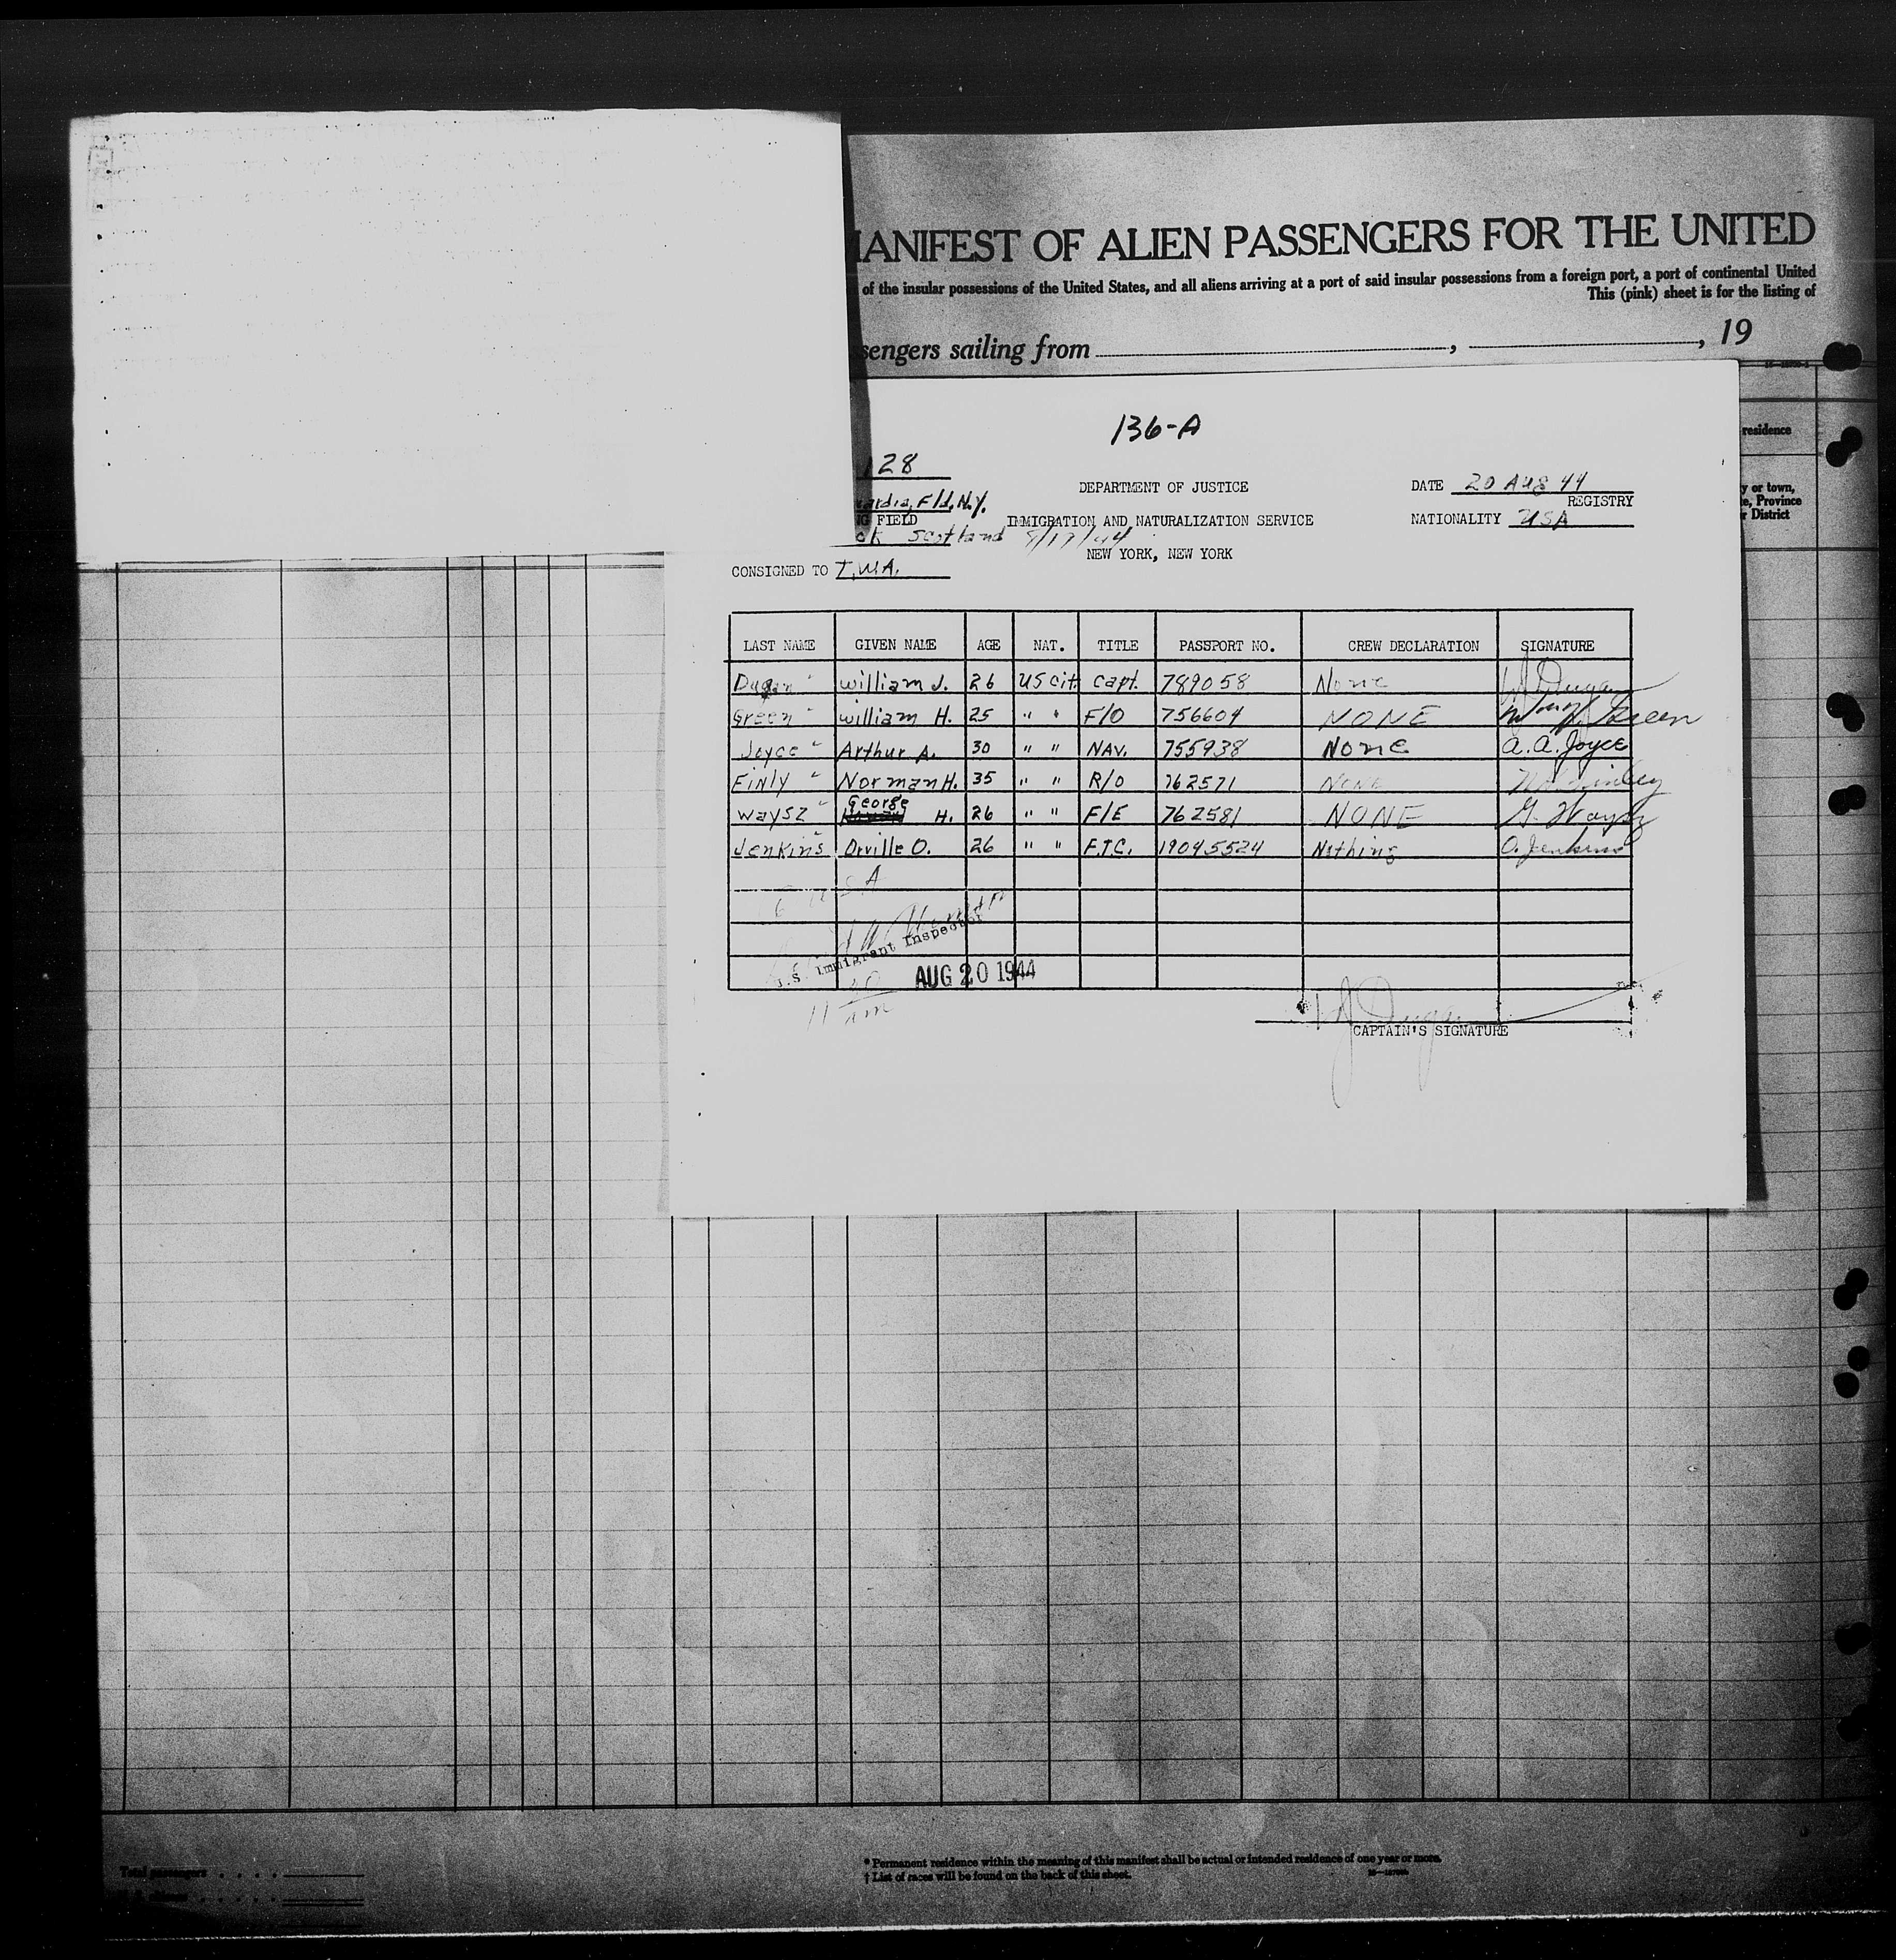 MANIFEST OF ALIEN PASSENGERS FOR THE UNITED
of the insular possessions of the United States, and all aliens arriving at a port of said insular possessions from a foreign port, a port of continental United
This (pink) sheet is for the listing of
sengers sailing from , , 19
residence
y or town,
e, Province
r District
136-A
128
DEPARTMENT OF JUSTICE
DATE 20 Aug 44
REGISTRY
uardia, Fld, N.Y.
NG FIELD
IMMIGRATION AND NATURALIZATION SERVICE
NATIONALITY USA
ck Scotland 8/17/44
NEW YORK, NEW YORK
CONSIGNED TO T.W.A.
LAST NAME GIVEN NAME AGE NAT. TITLE PASSPORT NO. CREW DECLARATION SIGNATURE
Dugan William J. 26 US cit. Capt. 789058 None WJ Dugan
Green William H. 25 " " F/O 756604 NONE William H. Green
Joyce Arthur A. 30 " " NAV. 755938 None A. A. Joyce
Finly Norman H. 35 " " R/O 762571 None N. H. Finley
Waysz George H. 26 " " F/E 762581 NONE G. Waysz
Jenkins Orville O. 26 " " F.T.C. 19045524 Nothing O. Jenkins
6 USA
U.S. Immigrant Inspector
AUG 20 1944
11 30 am
WJ Dugan
CAPTAIN'S SIGNATURE
Total passengers
* Permanent residence within the meaning of this manifest shall be actual or intended residence of one year or more.
† List of races will be found on the back of this sheet.